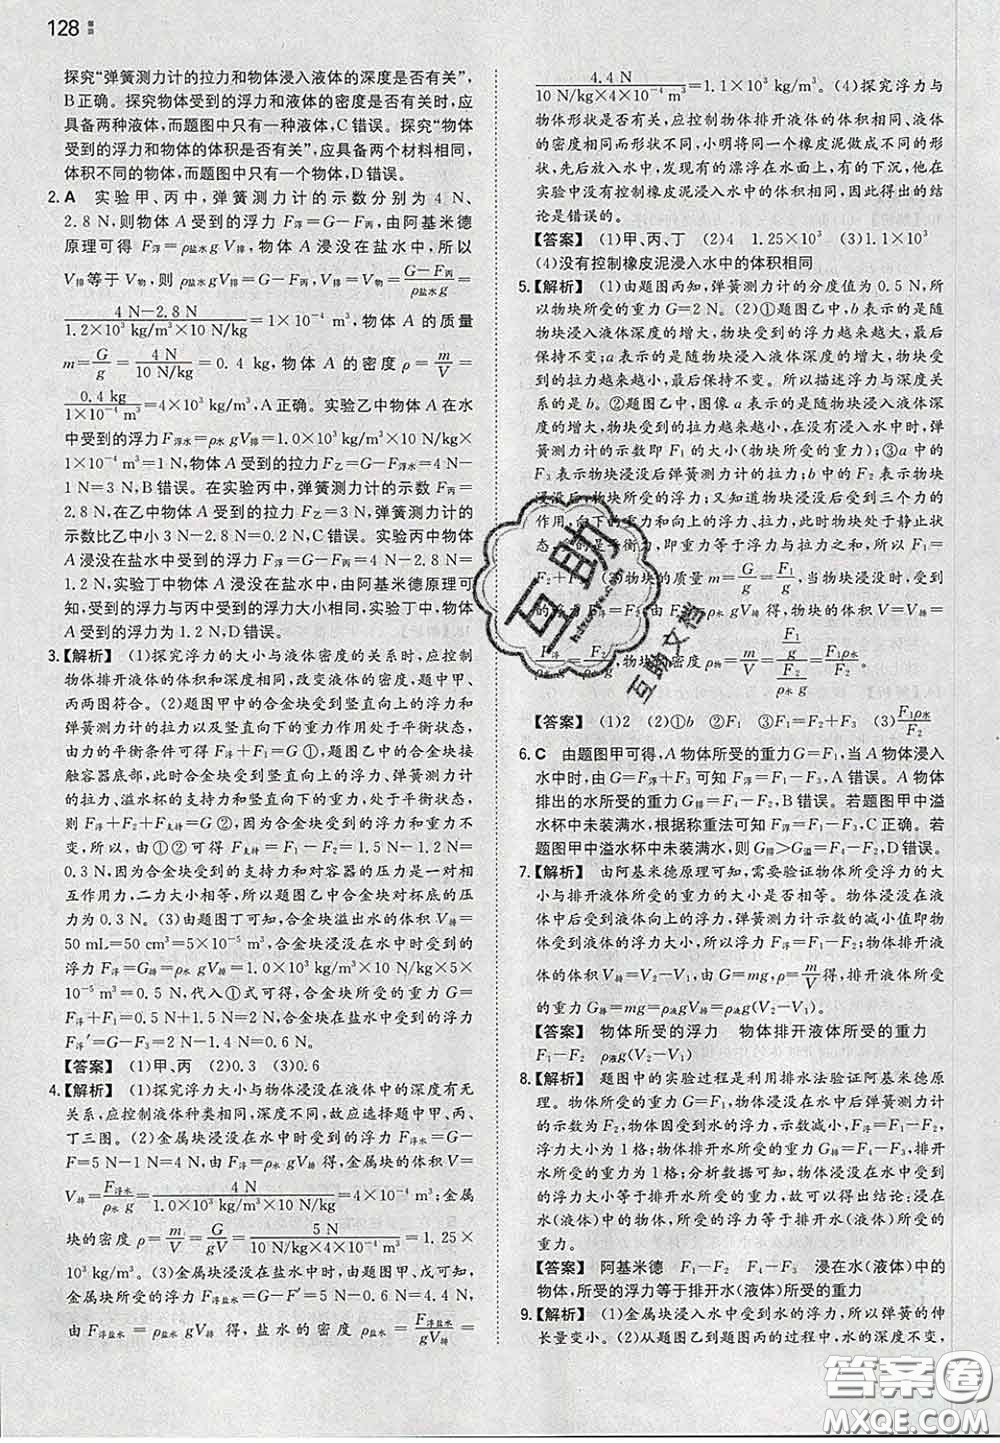 128
探究“弹簧测力计的拉力和物体浸入液体的深度是否有关”,
B正确。探究物体受到的浮力和液体的密度是否有关时,应
具备两种液体,而题图中只有一种液体,C错误。探究“物体
受到的浮力和物体的体积是否有关”,应具备两个材料相同、
体积不同的物体,而题图中只有一个物体,D错误。
2. A 实验甲、丙中,弹簧测力计的示数分别为 4 N、
2.8 N,则物体 A 受到的浮力 F浮=G-F丙,由阿基米德
原理可得 F浮=ρ盐水 gV排,物体 A 浸没在盐水中,所以
V排等于 V物,则 ρ盐水 gV排=G-F丙,V排=(G-F丙)/(ρ盐水 g)=
(4 N-2.8 N)/(1.2×10³ kg/m³×10 N/kg)=1×10⁻⁴ m³,物体 A 的质量
m=G/g=4 N/(10 N/kg)=0.4 kg,物体 A 的密度 ρ=m/V=
0.4 kg/(1×10⁻⁴ m³)=4×10³ kg/m³,A正确。实验乙中物体 A 在水
中受到的浮力 F浮水=ρ水 gV排=1.0×10³ kg/m³×10 N/kg×
1×10⁻⁴ m³=1 N,弹簧测力计的示数 F乙=G-F浮水=4 N-
1 N=3 N,B错误。在实验丙中,弹簧测力计的示数 F丙=
2.8 N,在乙中物体受到的拉力 F乙=3 N,弹簧测力计的
示数比乙中小 3 N-2.8 N=0.2 N,C错误。实验丙中物体
A 浸没在盐水中受到的浮力 F浮=G-F丙=4 N-2.8 N=
1.2 N,实验丁中物体 A 浸没在盐水中,由阿基米德原理可
知,受到的浮力与丙中受到的浮力大小相同,实验丁中物体
A 受到的浮力为 1.2 N,D错误。
3.【解析】 (1)探究浮力的大小与液体密度的关系时,应控制
物体排开液体的体积和深度相同,改变液体的密度,题中甲、
丙两图符合。(2)题图甲中的合金块受到竖直向上的浮力和
弹簧测力计的拉力以及竖直向下的重力作用处于平衡状态,
由力的平衡条件可得 F浮+F₁=G ①,题图乙中合金块接
触容器底部,此时合金块受到竖直向上的浮力、弹簧测力计
的拉力、溢水杯的支持力和竖直向下的重力,处于平衡状态,
则 F浮+F₂+F支持=G ②,因为合金块受到的浮力和重力不
变,所以,由①②可得 F支持=F₁-F₂=1.5 N-1.2 N=
0.3 N,因为合金块受到的支持力和对容器的压力是一对相
互作用力,二力大小相等,所以题图乙中合金块对杯底的压
力为 0.3 N。(3)由题图丁可知,合金块溢出水的体积 V排=
50 mL=50 cm³=5×10⁻⁵ m³,合金块浸没在水中时受到的
浮力 F浮=G排=ρ水 gV排=1.0×10³ kg/m³×10 N/kg×5×
10⁻⁵ m³=0.5 N,代入①式可得,合金块所受的重力 G=
F浮+F₁=0.5 N+1.5 N=2 N,合金块在盐水中受到的浮力
F浮′=G-F₃=2 N-1.4 N=0.6 N。
【答案】 (1)甲、丙 (2)0.3 (3)0.6
4.【解析】 (1)探究浮力大小与物体浸没在液体中的深度有无
关系,应控制液体种类相同,深度不同,故应选择题中甲、丙、
丁三图。(2)金属块浸没在水中时受到的浮力 F浮水=G-
F=5 N-1 N=4 N,由 F浮水=ρ水 gV排得,金属块的体积 V=
V排=F浮水/(ρ水 g)=4 N/(1.0×10³ kg/m³×10 N/kg)=4×10⁻⁴ m³;金属
块的密度 ρ=m/V=G/(gV)=5 N/(10 N/kg×4×10⁻⁴ m³)=1.25×
10³ kg/m³。(3)金属块浸没在盐水中时,由题图甲、戊可知,
金属块受到的浮力 F浮盐水=G-F′=5 N-0.6 N=4.4 N,
由 F浮盐水=ρ盐水 gV排 得,盐水的密度 ρ盐水=F浮盐水/(gV排)=
4.4 N/(10 N/kg×4×10⁻⁴ m³)=1.1×10³ kg/m³。(4)探究浮力与
物体形状是否有关,应控制物体排开液体的体积相同、液体
的密度相同而形状不同,小明将橡皮泥做成不同的形
状,先后放入水中,发现有的漂浮在水面上,有的下沉,他在
实验中没有控制橡皮泥浸入水中的体积相同,故得出的结
论是错误的。
【答案】 (1)甲、丙、丁 (2)4 1.25×10³ (3)1.1×10³
(4)没有控制橡皮泥浸入水中的体积相同
5.【解析】 (1)由题图丙知,弹簧测力计的分度值为 0.5 N,所
以物块所受的重力 G=2 N。(2)①题图乙中,b 表示的是随
物块浸入液体深度的增大,物块受到的浮力越来越大,最后
保持不变;a 表示的是随物块浸入液体深度的增大,物块受
到的拉力越来越小,最后保持不变。所以描述浮力与深度关
系的是 b。②题图乙中,图像 a 表示的是随物块浸入液体深
度的增大,物块受到的拉力越来越小,在没有浸入水中前,弹
簧测力计的示数即 F₁ 的大小(物块所受的重力);③a 中的
F₃ 表示物块浸没后弹簧测力计的拉力;b 中的 F₂ 表示物块
浸没后,物块所受的浮力;又知道物块浸没后受到三个力的
作用,向下的重力和向上的浮力、拉力,此时物块处于静止状
态,受到的是平衡力,即重力等于浮力与拉力之和,所以 F₁=
F₂+F₃。(3)物块的质量 m=G/g=F₁/g,当物块浸没时,受到
物块密度 ρ物=m/V=(F₁/g)/(F₂/(ρ水 g))=F₁ρ水/F₂。
【答案】 (1)2 (2)①b ②F₁ ③F₁=F₂+F₃ (3)F₁ρ水/F₂
6. C 由题图甲可得,A 物体所受的重力 G=F₁,当 A 物体浸入
水中时,由 G=F浮+F₃ 可知 F浮=F₁-F₃,A错误。A 物体
排出的水所受的重力 G排=F₄-F₂,B错误。若题图甲中溢
水杯中未装满水,根据称重法可知 F浮=F₁-F₃,C正确。若
题图甲中溢水杯中未装满水,则 G排>G溢=F₄-F₂,D错误。
7.【解析】 由阿基米德原理可知,需要验证物体所受浮力的大小
与排开液体所受的重力的大小是否相等。物体浸没在液
体中后受到液体向上的浮力,弹簧测力计示数的减小值即物
体受到的浮力大小,所以浮力 F浮=F₁-F₂,物体排开液
体的体积 V排=V₂-V₁。由 G=mg,ρ=m/V得,排开液体所受
的重力 G排=mg=ρ液 gV排=ρ液 g(V₂-V₁)。
【答案】 物体所受的浮力 物体排开液体所受的重力
F₁-F₂ ρ液 g(V₂-V₁)
8.【解析】 题图中的实验过程是利用排水法验证阿基米德原
理。物体所受的重力 G=F₁,物体浸没在水中后弹簧测力计
的示数为 F₂,物体因受到水的浮力,示数减小,F浮=F₁-F₂,
浮力大小为 1 格;物体排开水所受的重力=F₃-F₄,排开水
所受的重力为 1 格;分析数据可知,物体浸没在水中受到的
浮力大小等于排开水所受的重力,故可以得出结论:浸在
水(液体)中的物体,所受的浮力等于排开水(液体)所受的
重力。
【答案】 阿基米德 F₁-F₂ F₃-F₄ 浸在水(液体)中的
物体,所受的浮力等于排开水(液体)所受的重力
9.【解析】 (1)金属块浸入水中受到水的浮力,所以弹簧的伸
长量变小。(2)从题图乙到题图丙的过程中,水的深度不变,
互助
互助文档
答案圈
MXQE.COM